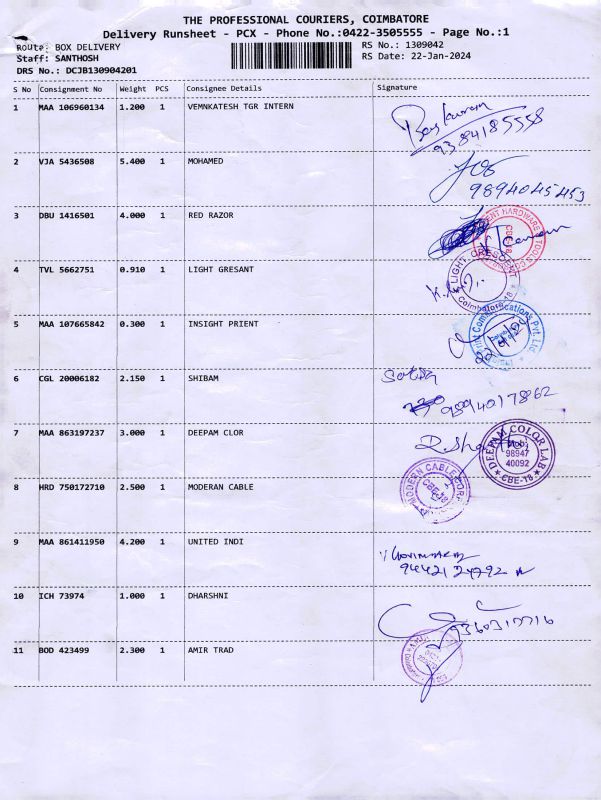 THE PROFESSIONAL COURIERS, COIMBATORE
Delivery Runsheet - PCX - Phone No.:0422-3505555 - Page No.:1
Route: BOX DELIVERY
RS No.: 1309042
Staff: SANTHOSH
RS Date: 22-Jan-2024
DRS No.: DCJB130904201
S No Consignment No Weight PCS Consignee Details Signature
1 MAA 106960134 1.200 1 VEMNKATESH TGR INTERN
9384185558
2 VJA 5436508 5.400 1 MOHAMED
9894045453
3 DBU 1416501 4.000 1 RED RAZOR
4 TVL 5662751 0.910 1 LIGHT GRESANT
LIGHT CRESCENT
Coimbatore-18
5 MAA 107665842 0.300 1 INSIGHT PRIENT
6 CGL 20006182 2.150 1 SHIBAM
7 MAA 863197237 3.000 1 DEEPAM CLOR
DEEPAM COLOR LAB
98947
40092
CBE-18
8 HRD 750172710 2.500 1 MODERAN CABLE
MODERN CABLE CORP
CBE-18
9 MAA 861411950 4.200 1 UNITED INDI
94421 24792
10 ICH 73974 1.000 1 DHARSHNI
11 BOD 423499 2.300 1 AMIR TRAD